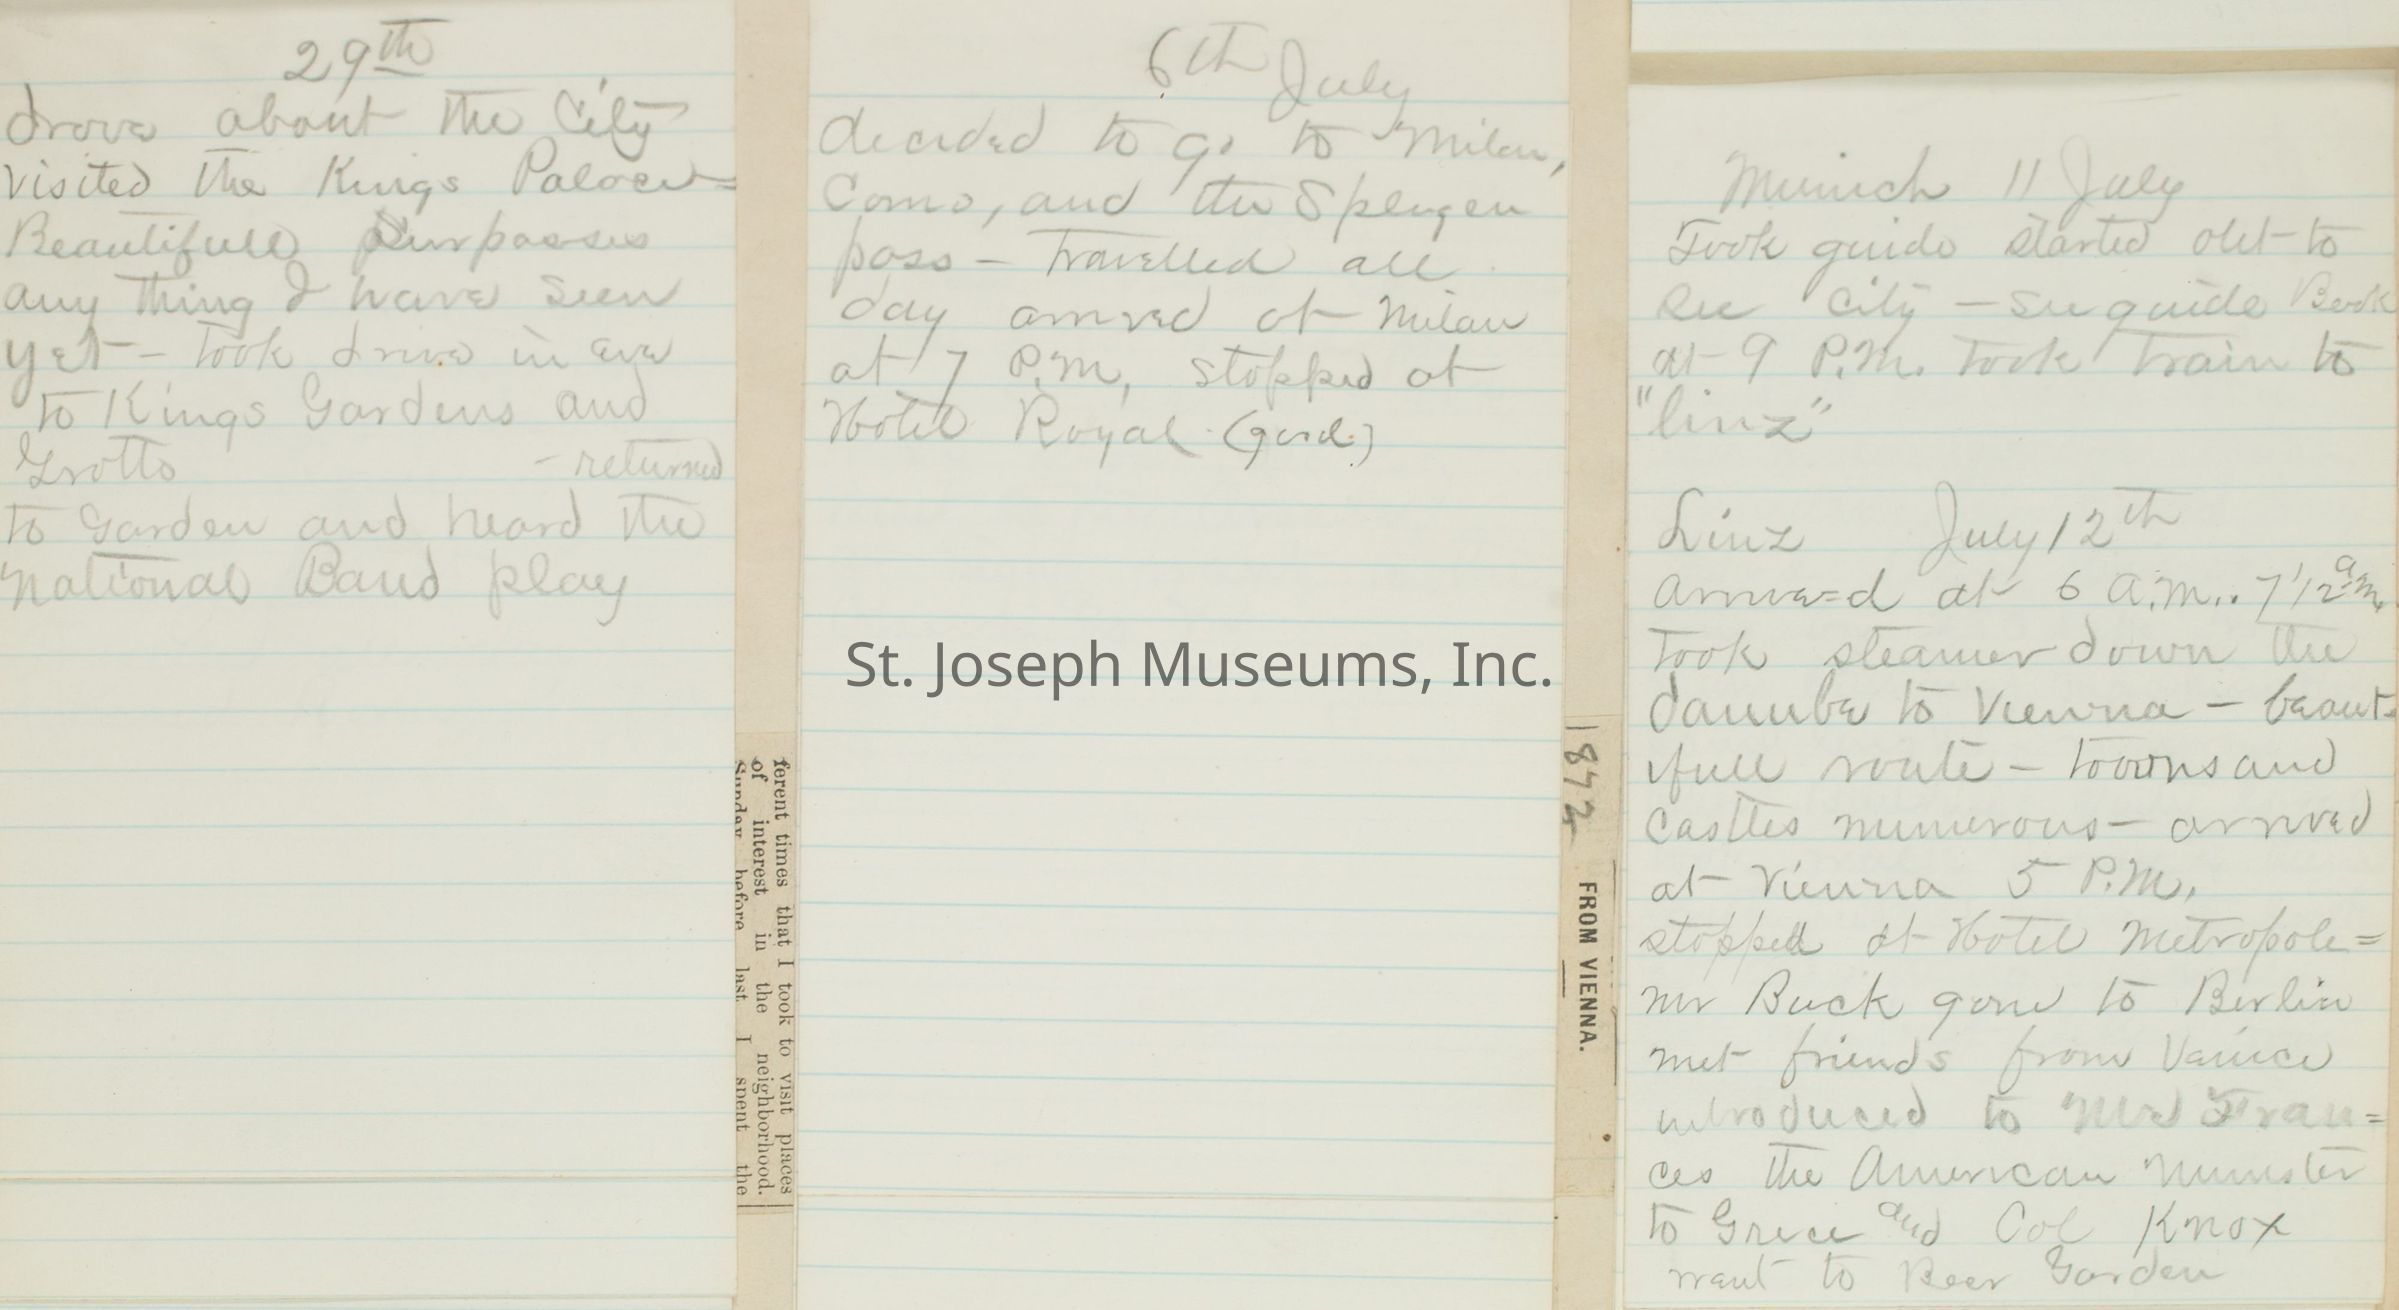 29th
drove about the City
visited the Kings Palace=
Beautifull Surpasses
any thing I have seen
yet - took drive in eve
to Kings Gardens and
Grotto - returned
to Garden and heard the
National Band play
ferent times that I took to visit places
of interest in the neighborhood.
Sunday before last I spent the
6th July
decided to go to Milan,
Como, and the Splugen
pass - travelled all
day arrived at Milan
at 7 P.M, stopped at
Hotel Royal (good.)
St. Joseph Museums, Inc.
1872
FROM VIENNA.
Munich 11 July
Took guide started out to
see City - see guide Book
at 9 P.M. took train to
"linz"
Linz July 12th
arrived at 6 A.M.. 7 1/2 a.m.
took steamer down the
danube to Vienna - beaut-
ifull route - towns and
castles numerous - arrived
at Vienna 5 P.M.
stopped at Hotel Metropole=
Mr Buck gone to Berlin
met friends from Venice
introduced to Mr Fran=
ces the American Minister
to Greece and Col Knox
went to Beer Garden